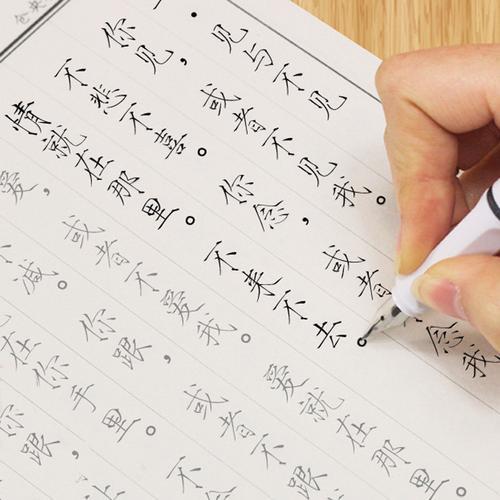 仓央
见与不见
你见，或者不见我。
不悲不喜。你念，或者念我
情就在那里。不来不去。
爱，或者不爱我。爱就在那里。
不减。你跟，或者不跟
在你手里。不
你跟，